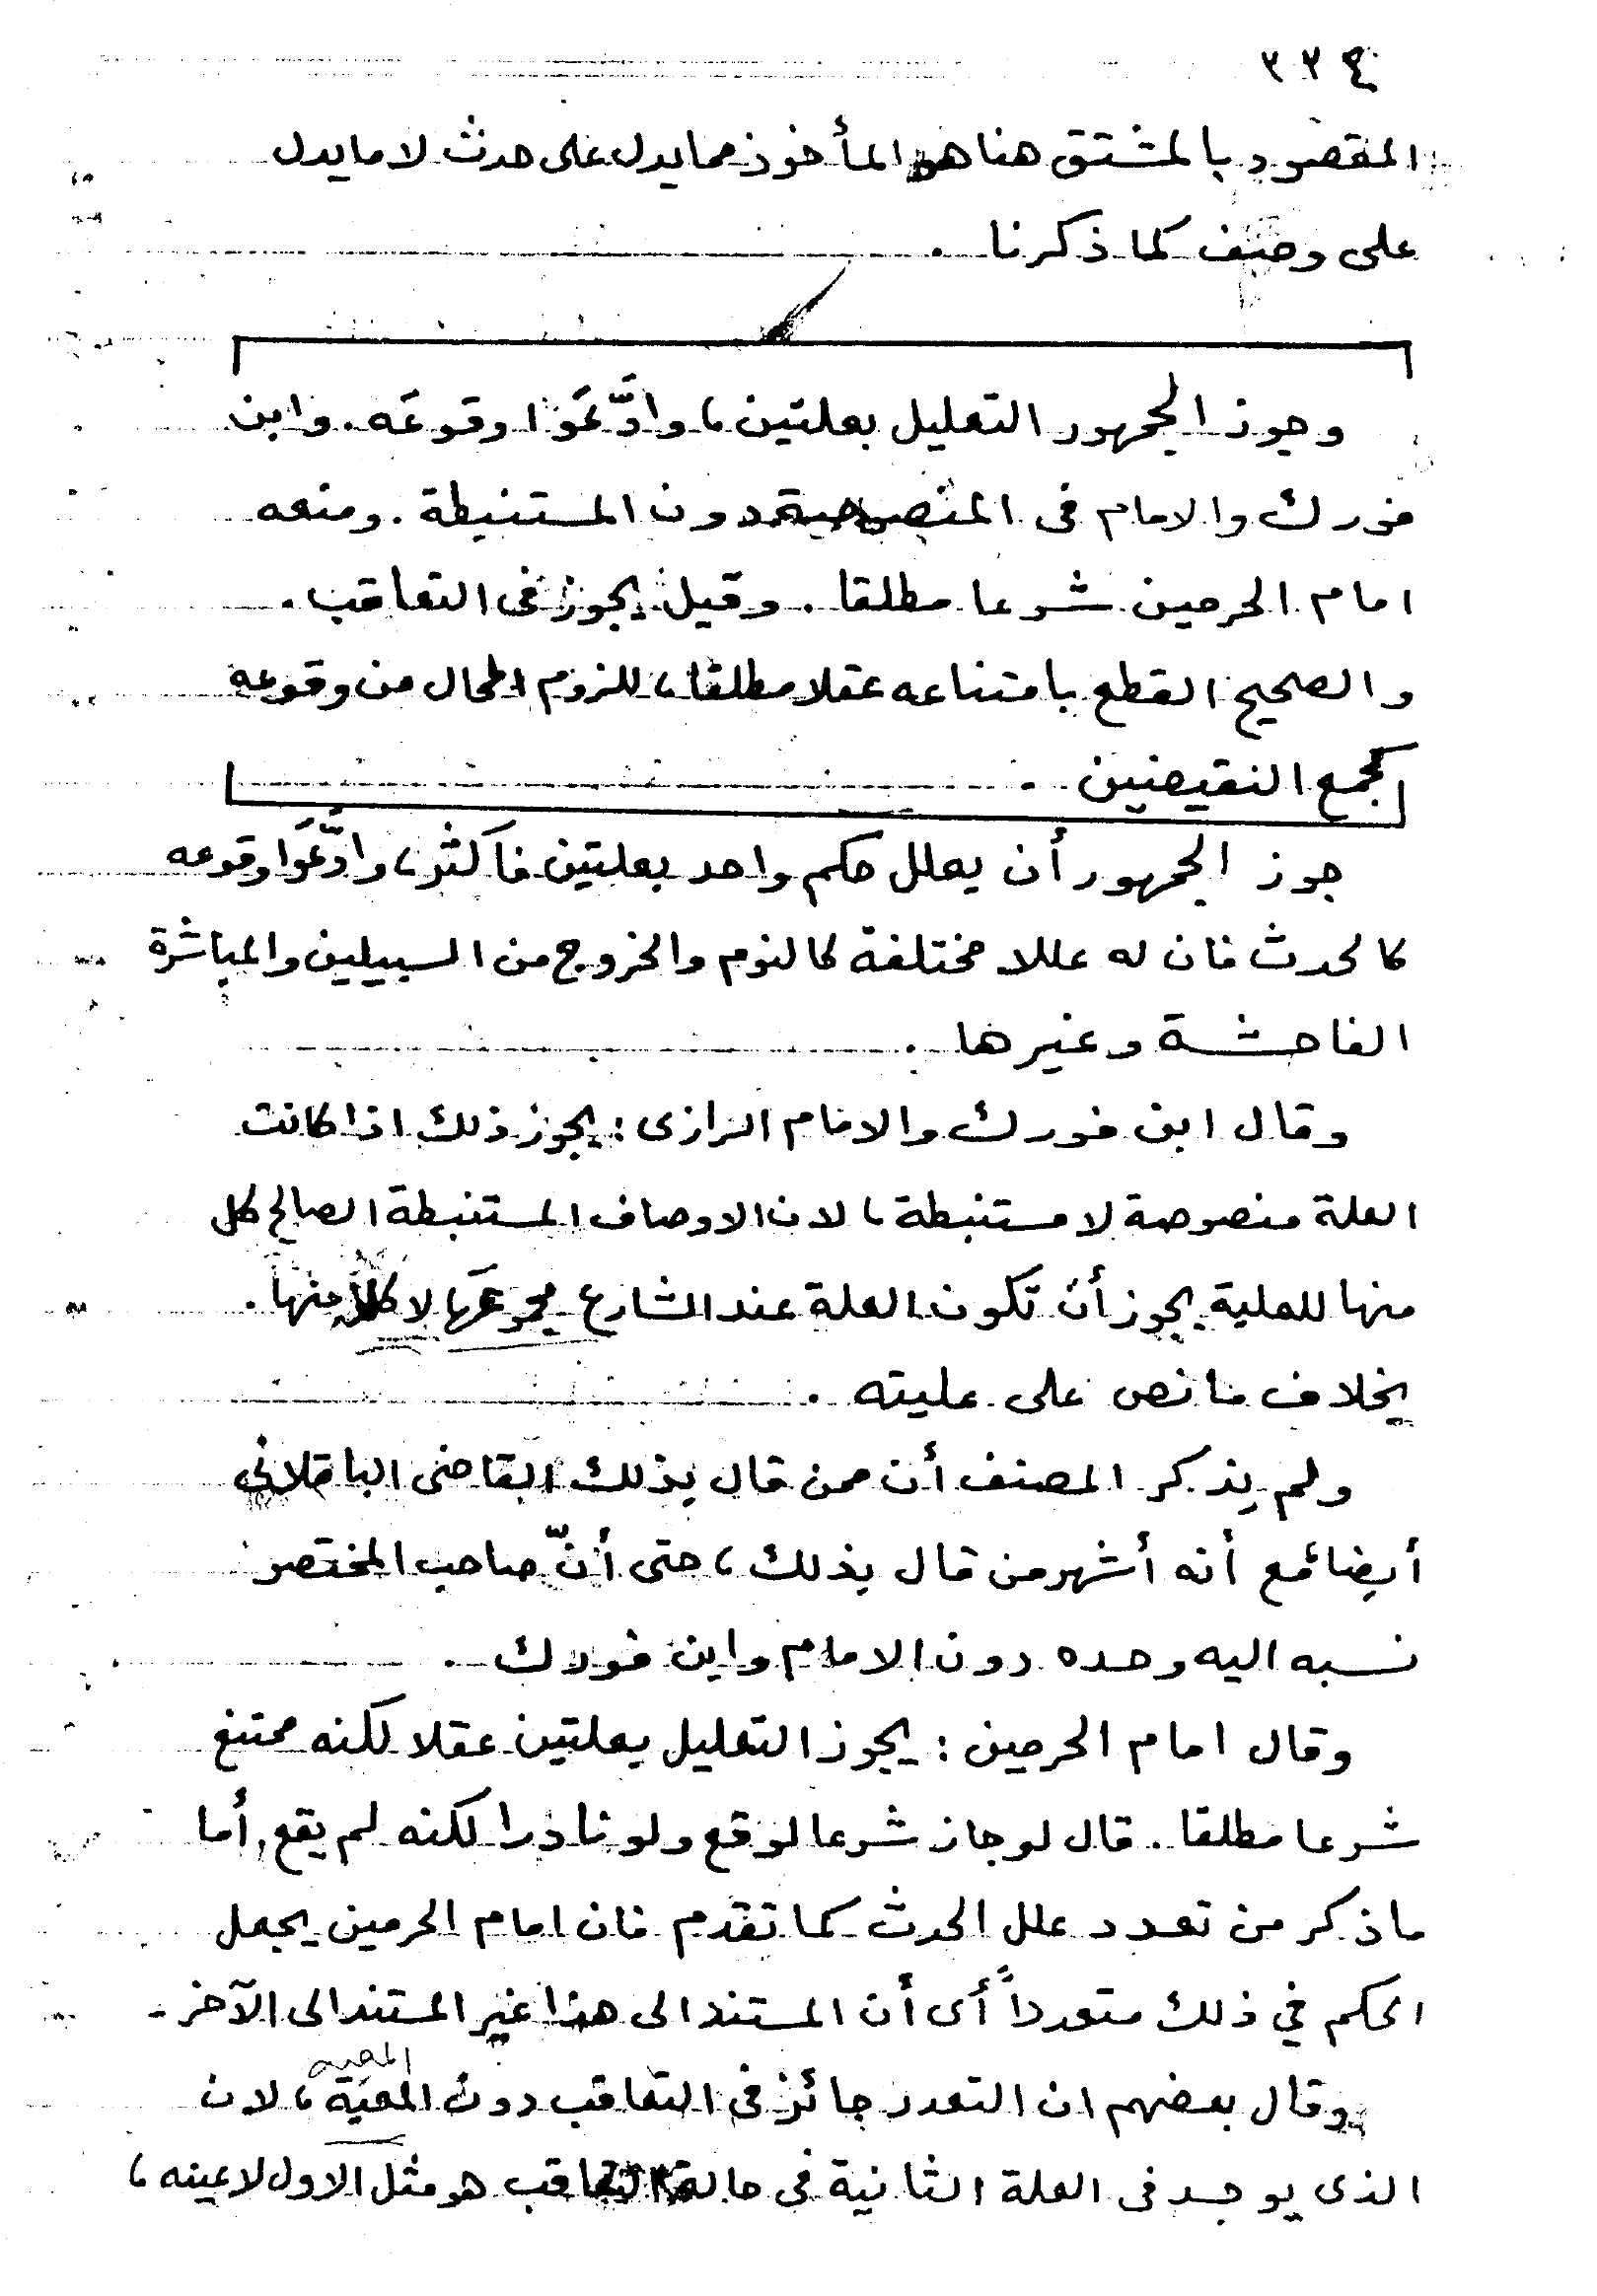 ٢٢٤
المقصود بالمشتق هنا هو المأخوذ مما يدل على حدث لا ما يدل
على وصف كما ذكرنا .
وجوز الجمهور التعليل بعلتين ، وادَّعَوا وقوعَه . وابن
فورك والامام فى المنصوصة دون المستنبطة . ومنعه
امام الحرمين شرعا مطلقا . وقيل يجوز فى التعاقب .
والصحيح القطع بامتناعه عقلا مطلقا ، للزوم المحال من وقوعه
كجمع النقيضين .
جوز الجمهور أن يعلل حكم واحد بعلتين فأكثر ، وادَّعَوا وقوعه
كالحدث فان له عللا مختلفة كالنوم والخروج من السبيلين والمباشرة
الفاحشة وغيرها .
وقال ابن فورك والامام الرازى : يجوز ذلك اذا كانت
العلة منصوصة لا مستنبطة ، لان الاوصاف المستنبطة الصالح كل
منها للعلية يجوز أن تكون العلة عند الشارع مجموعَها لا كلا منها .
بخلاف ما نص على عليته .
ولم يذكر المصنف أن ممن قال بذلك القاضى الباقلانى
أيضا مع أنه أشهر من قال بذلك ، حتى أنّ صاحب المختصر
نسبه اليه وحده دون الامام وابن فورك .
وقال امام الحرمين : يجوز التعليل بعلتين عقلا لكنه ممتنع
شرعا مطلقا . قال لو جاز شرعا لوقع ولو نادرا لكنه لم يقع , أما
ما ذكر من تعدد علل الحدث كما تقدم فان امام الحرمين يجعل
الحكم في ذلك متعدداً أى أن المستند الى هذا غير المستند الى الآخر -
المعية
وقال بعضهم ان التعدد جائز فى التعاقب دون المعية ، لان
الذى يوجد فى العلة الثانية فى حالة التعاقب هو مثل الاول لا عينه ،